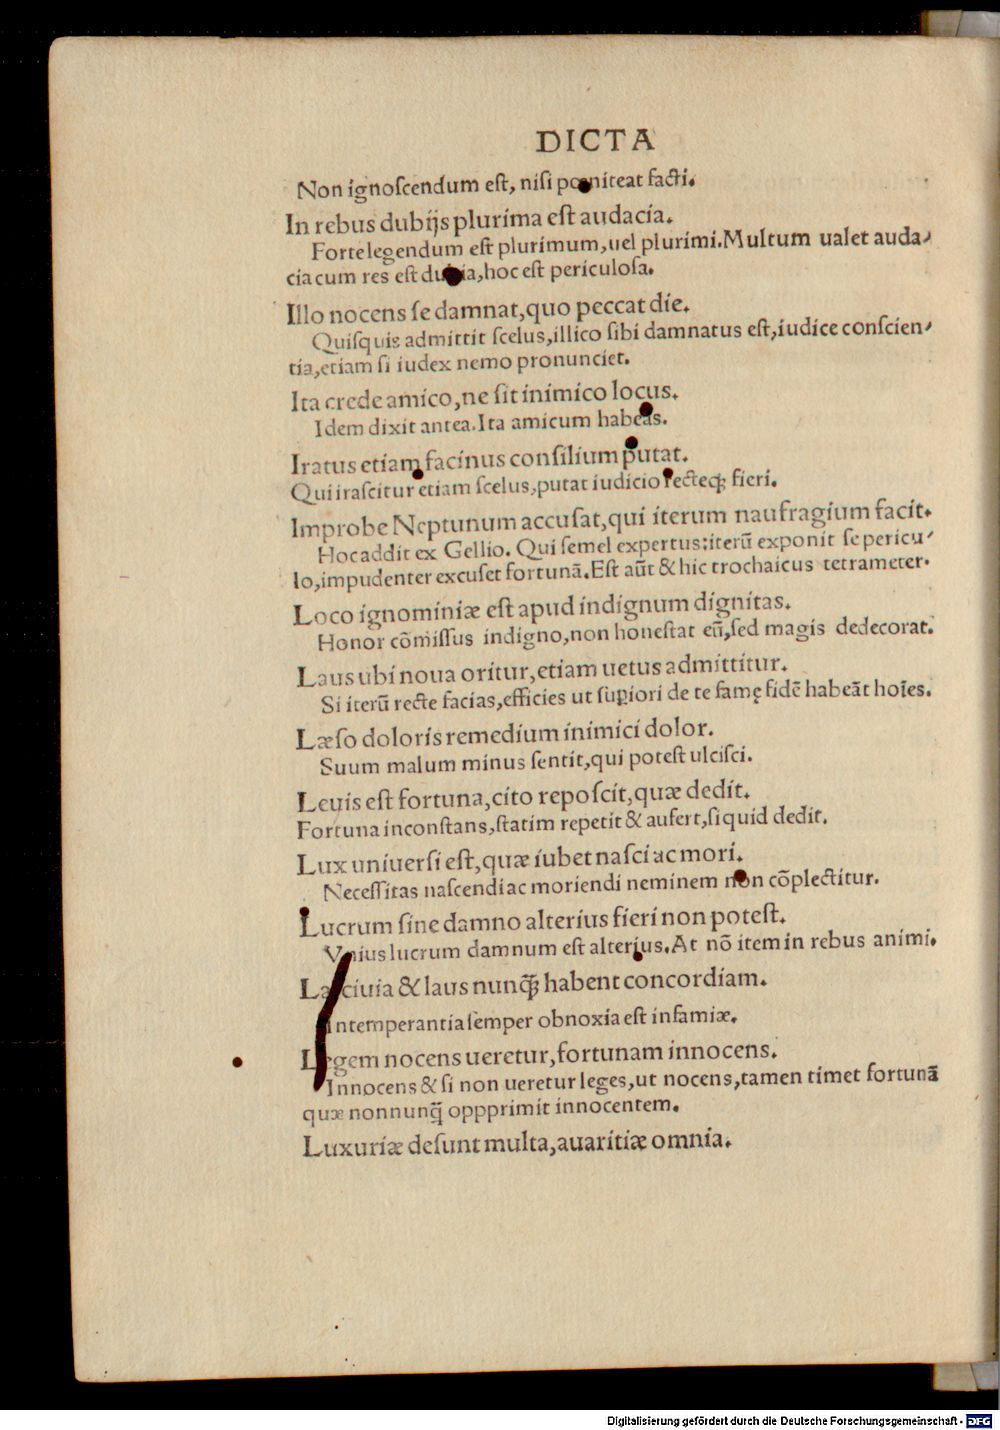 DICTA
Non ignoſcendum eſt, niſi pœniteat facti.
In rebus dubijs plurima eſt audacia.
Forte legendum eſt plurimum, uel plurimi. Multum ualet auda-
cia cum res eſt dubia, hoc eſt periculoſa.
Illo nocens ſe damnat, quo peccat die.
Quiſquis admittit ſcelus, illico ſibi damnatus eſt, iudice conſcien-
tia, etiam ſi iudex nemo pronunciet.
Ita crede amico, ne ſit inimico locus.
Idem dixit antea. Ita amicum habeas.
Iratus etiam facinus conſilium putat.
Qui iraſcitur etiam ſcelus, putat iudicio recteq; fieri.
Improbe Neptunum accuſat, qui iterum naufragium facit.
Hoc addit ex Gellio. Qui ſemel expertus: iterũ exponit ſe pericu-
lo, impudenter excuſet fortunã. Eſt aũt & hic trochaicus tetrameter.
Loco ignominiæ eſt apud indignum dignitas.
Honor cõmiſſus indigno, non honeſtat eũ, ſed magis dedecorat.
Laus ubi noua oritur, etiam uetus admittitur.
Si iterũ recte facias, efficies ut ſuꝑiori de te famę fidẽ habeãt hoĩes.
Læſo doloris remedium inimici dolor.
Suum malum minus ſentit, qui poteſt ulciſci.
Leuis eſt fortuna, cito repoſcit, quæ dedit.
Fortuna inconſtans, ſtatim repetit & aufert, ſiquid dedit.
Lux uniuerſi eſt, quæ iubet naſci ac mori.
Neceſſitas naſcendi ac moriendi neminem non cõplectitur.
Lucrum ſine damno alterius fieri non poteſt.
Vnius lucrum damnum eſt alterius. At nõ item in rebus animi.
Laſciuia & laus nunq̃; habent concordiam.
Intemperantia ſemper obnoxia eſt infamiæ.
Legem nocens ueretur, fortunam innocens.
Innocens & ſi non ueretur leges, ut nocens, tamen timet fortunã
quæ nonnunq̃ oppprimit innocentem.
Luxuriæ deſunt multa, auaritiæ omnia.
Digitalisierung gefördert durch die Deutsche Forschungsgemeinschaft - DFG